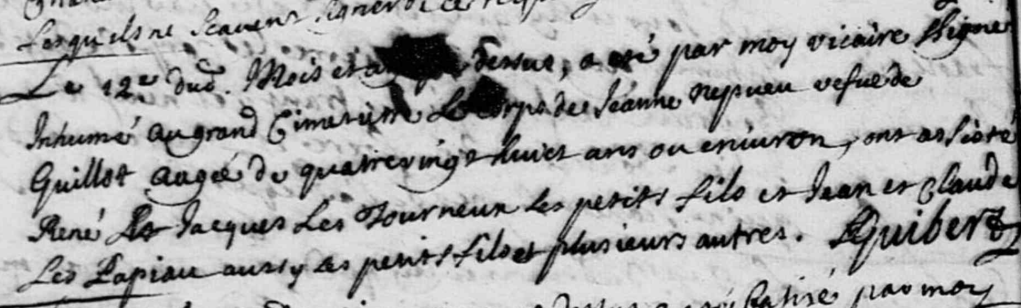 Lesquels ne scavent signer de ce
Le 12e dud. Mois et an dessus, a eté par moy vicaire Ssigné
Inhumé au grand Cimetiere Le Corps de Jeanne Nepueu vefue de
Guillot aagée de quatrevingt huict ans ou enuiron, ont assisté
René et Jacques Les Tourneux Les petits fils et Jean et Claude
Les Papiau aussy Les petits fils et plusieurs autres. LGuibert
batisé par moy